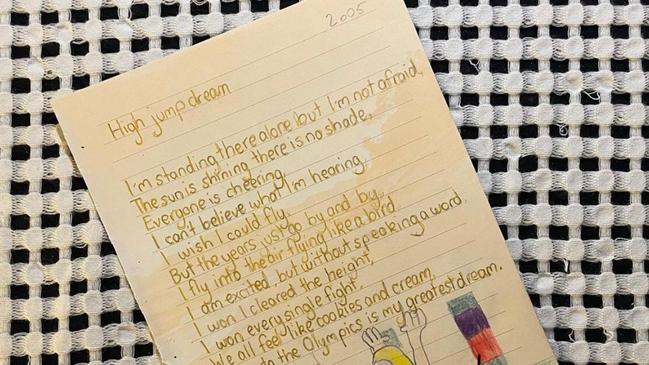 2005
High jump dream
I'm standing there alone but I'm not afraid,
The sun is shyning there is no shade,
Everyone is cheering,
I can't believe what I'm hearing,
I wish I could fly,
But the years just go by and by,
I fly into the air flying like a bird
I am excited, but without speaking a word.
I won I cleared the height,
I won every single fight,
We all feel like cookies and cream,
to the Olympics is my greatest dream.